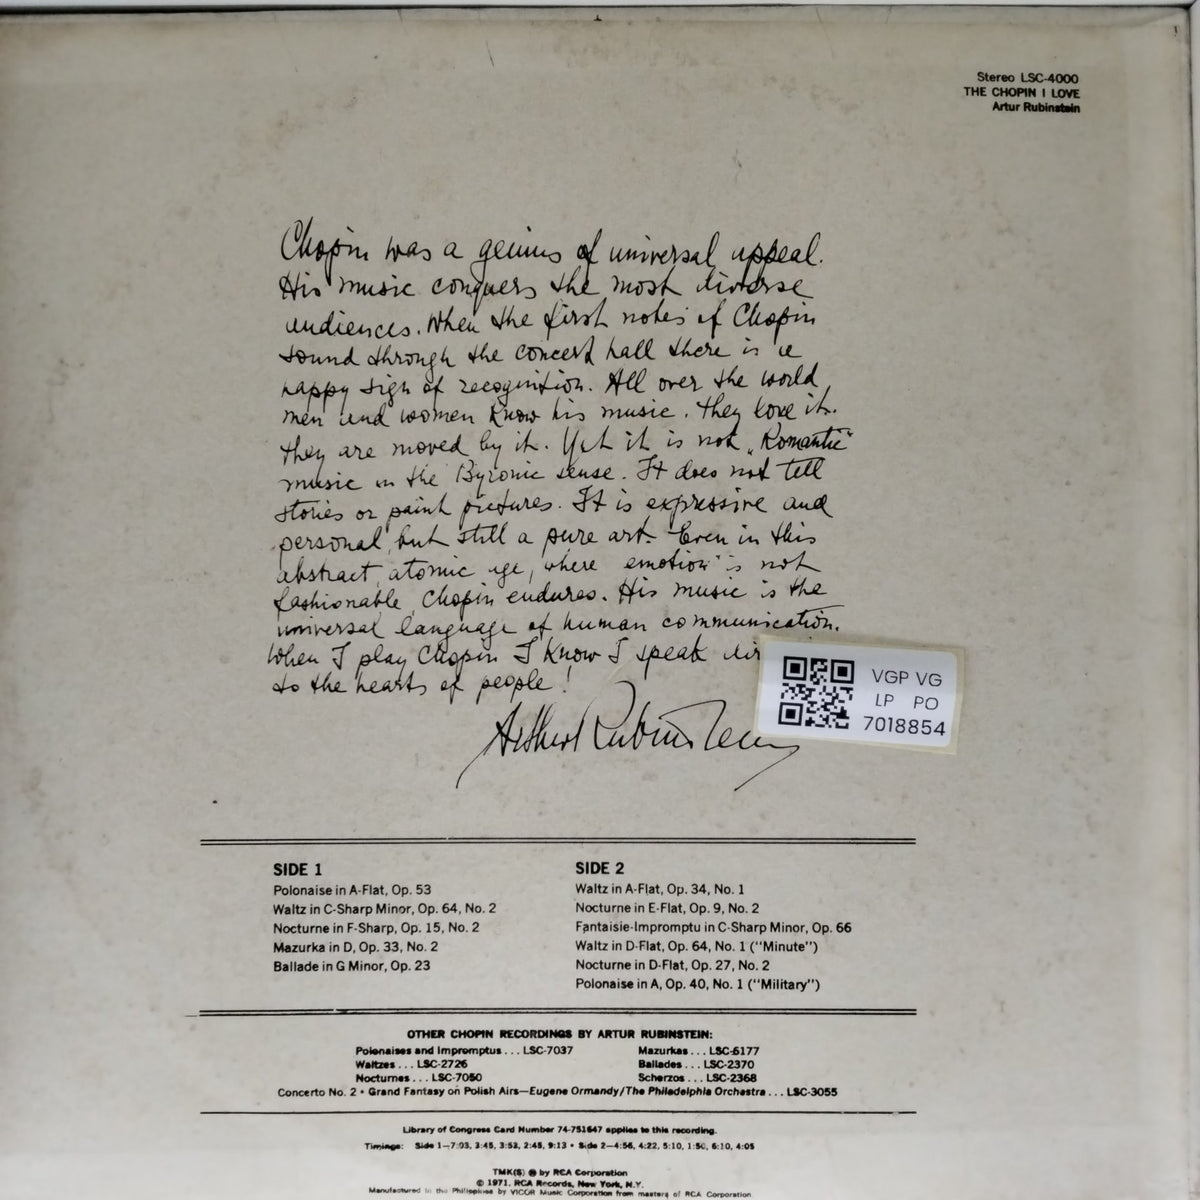 Stereo LSC-4000
THE CHOPIN I LOVE
Artur Rubinstein
Chopin was a genius of universal appeal.
His music conquers the most diverse
audiences. When the first notes of Chopin
sound through the concert hall there is a
happy sigh of recognition. All over the world
men and women know his music. They love it.
They are moved by it. Yet it is not „Romantic"
music in the Byronic sense. It does not tell
stories or paint pictures. It is expressive and
personal, but still a pure art. Even in this
abstract, atomic age, where emotion is not
fashionable, Chopin endures. His music is the
universal language of human communication.
When I play Chopin I know I speak
to the hearts of people!
Arthur Rubinstein
VGP VG
LP PO
7018854
SIDE 1
Polonaise in A-Flat, Op. 53
Waltz in C-Sharp Minor, Op. 64, No. 2
Nocturne in F-Sharp, Op. 15, No. 2
Mazurka in D, Op. 33, No. 2
Ballade in G Minor, Op. 23
SIDE 2
Waltz in A-Flat, Op. 34, No. 1
Nocturne in E-Flat, Op. 9, No. 2
Fantaisie-Impromptu in C-Sharp Minor, Op. 66
Waltz in D-Flat, Op. 64, No. 1 ("Minute")
Nocturne in D-Flat, Op. 27, No. 2
Polonaise in A, Op. 40, No. 1 ("Military")
OTHER CHOPIN RECORDINGS BY ARTUR RUBINSTEIN:
Polonaises and Impromptus . . . LSC-7037
Waltzes . . . LSC-2726
Nocturnes . . . LSC-7050
Mazurkas . . . LSC-6177
Ballades . . . LSC-2370
Scherzos . . . LSC-2368
Concerto No. 2 • Grand Fantasy on Polish Airs—Eugene Ormandy/The Philadelphia Orchestra . . . LSC-3055
Library of Congress Card Number 74-751647 applies to this recording.
Timings: Side 1—7:03, 3:45, 3:53, 2:45, 9:13 • Side 2—4:56, 4:22, 5:10, 1:50, 6:10, 4:05
TMK(S) ® by RCA Corporation
© 1971, RCA Records, New York, N.Y.
Manufactured in the Philippines by VICOR Music Corporation from masters of RCA Corporation.